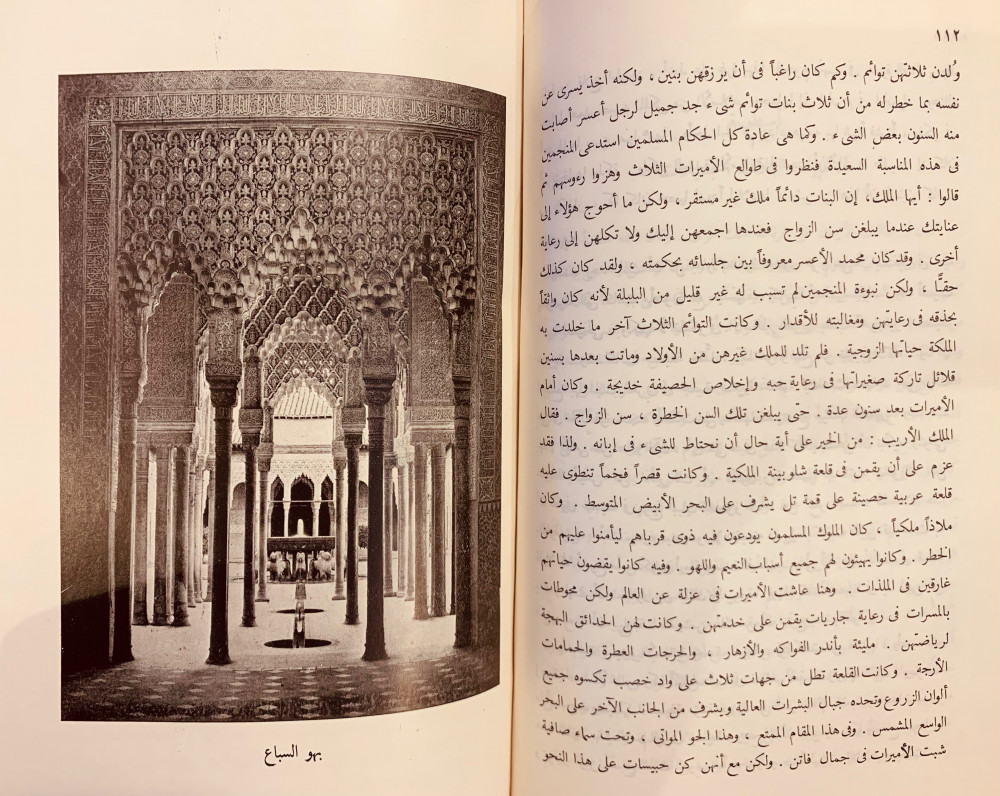 ١١٢
وُلدن ثلاثتهن توائم . وكم كان راغباً فى أن يرزقهن بنين ، ولكنه أخذ يسرى عن
نفسه بما خطر له من أن ثلاث بنات توائم شىء جد جميل لرجل أعسر أصابت
منه السنون بعض الشىء . وكما هى عادة كل الحكام المسلمين استدعى المنجمين
فى هذه المناسبة السعيدة فنظروا فى طوالع الأميرات الثلاث وهزوا رءوسهم ثم
قالوا : أيها الملك، إن البنات دائماً ملك غير مستقر ، ولكن ما أحوج هؤلاء إلى
عنايتك عندما يبلغن سن الزواج فعندها اجمعهن إليك ولا تكلهن إلى رعاية
أخرى . وقد كان محمد الأعسر معروفاً بين جلسائه بحكمته ، ولقد كان كذلك
حقًّا ، ولكن نبوءة المنجمين لم تسبب له غير قليل من البلبلة لأنه كان واثقاً
بحذقه فى رعايتهن ومغالبته للأقدار . وكانت التوائم الثلاث آخر ما خلدت به
الملكة حياتها الزوجية . فلم تلد للملك غيرهن من الأولاد وماتت بعدها بسنين
قلائل تاركة صغيراتها فى رعاية حبه وإخلاص الحصيفة خديجة . وكان أمام
الأميرات بعد سنون عدة . حتى يبلغن تلك السن الخطرة ، سن الزواج . فقال
الملك الأريب : من الخير على أية حال أن نحتاط للشىء فى إبانه . ولذا فقد
عزم على أن يقمن فى قلعة شلوبينة الملكية . وكانت قصراً فخماً تنطوى عليه
قلعة عربية حصينة على قمة تل يشرف على البحر الأبيض المتوسط . وكان
ملاذاً ملكياً ، كان الملوك المسلمون يودعون فيه ذوى قرباهم ليأمنوا عليهم من
الخطر . وكانوا يهيئون لهم جميع أسباب النعيم واللهو . وفيه كانوا يقضون حياتهم
غارقين فى الملذات . وهنا عاشت الأميرات فى عزلة عن العالم ولكن محوطات
بالمسرات فى رعاية جاريات يقمن على خدمتهن . وكانت لهن الحدائق البهجة
لرياضتهن . مليئة بأندر الفواكه والأزهار ، والحرجات العطرة والحمامات
الأرجة . وكانت القلعة تطل من جهات ثلاث على واد خصب تكسوه جميع
ألوان الزروع وتحده جبال البشرات العالية ويشرف من الجانب الآخر على البحر
الواسع المشمس . وفى هذا المقام الممتع ، وهذا الجو المواتى ، وتحت سماء صافية
شبت الأميرات فى جمال فاتن . ولكن مع أنهن كن حبيسات على هذا النحو
بهو السباع